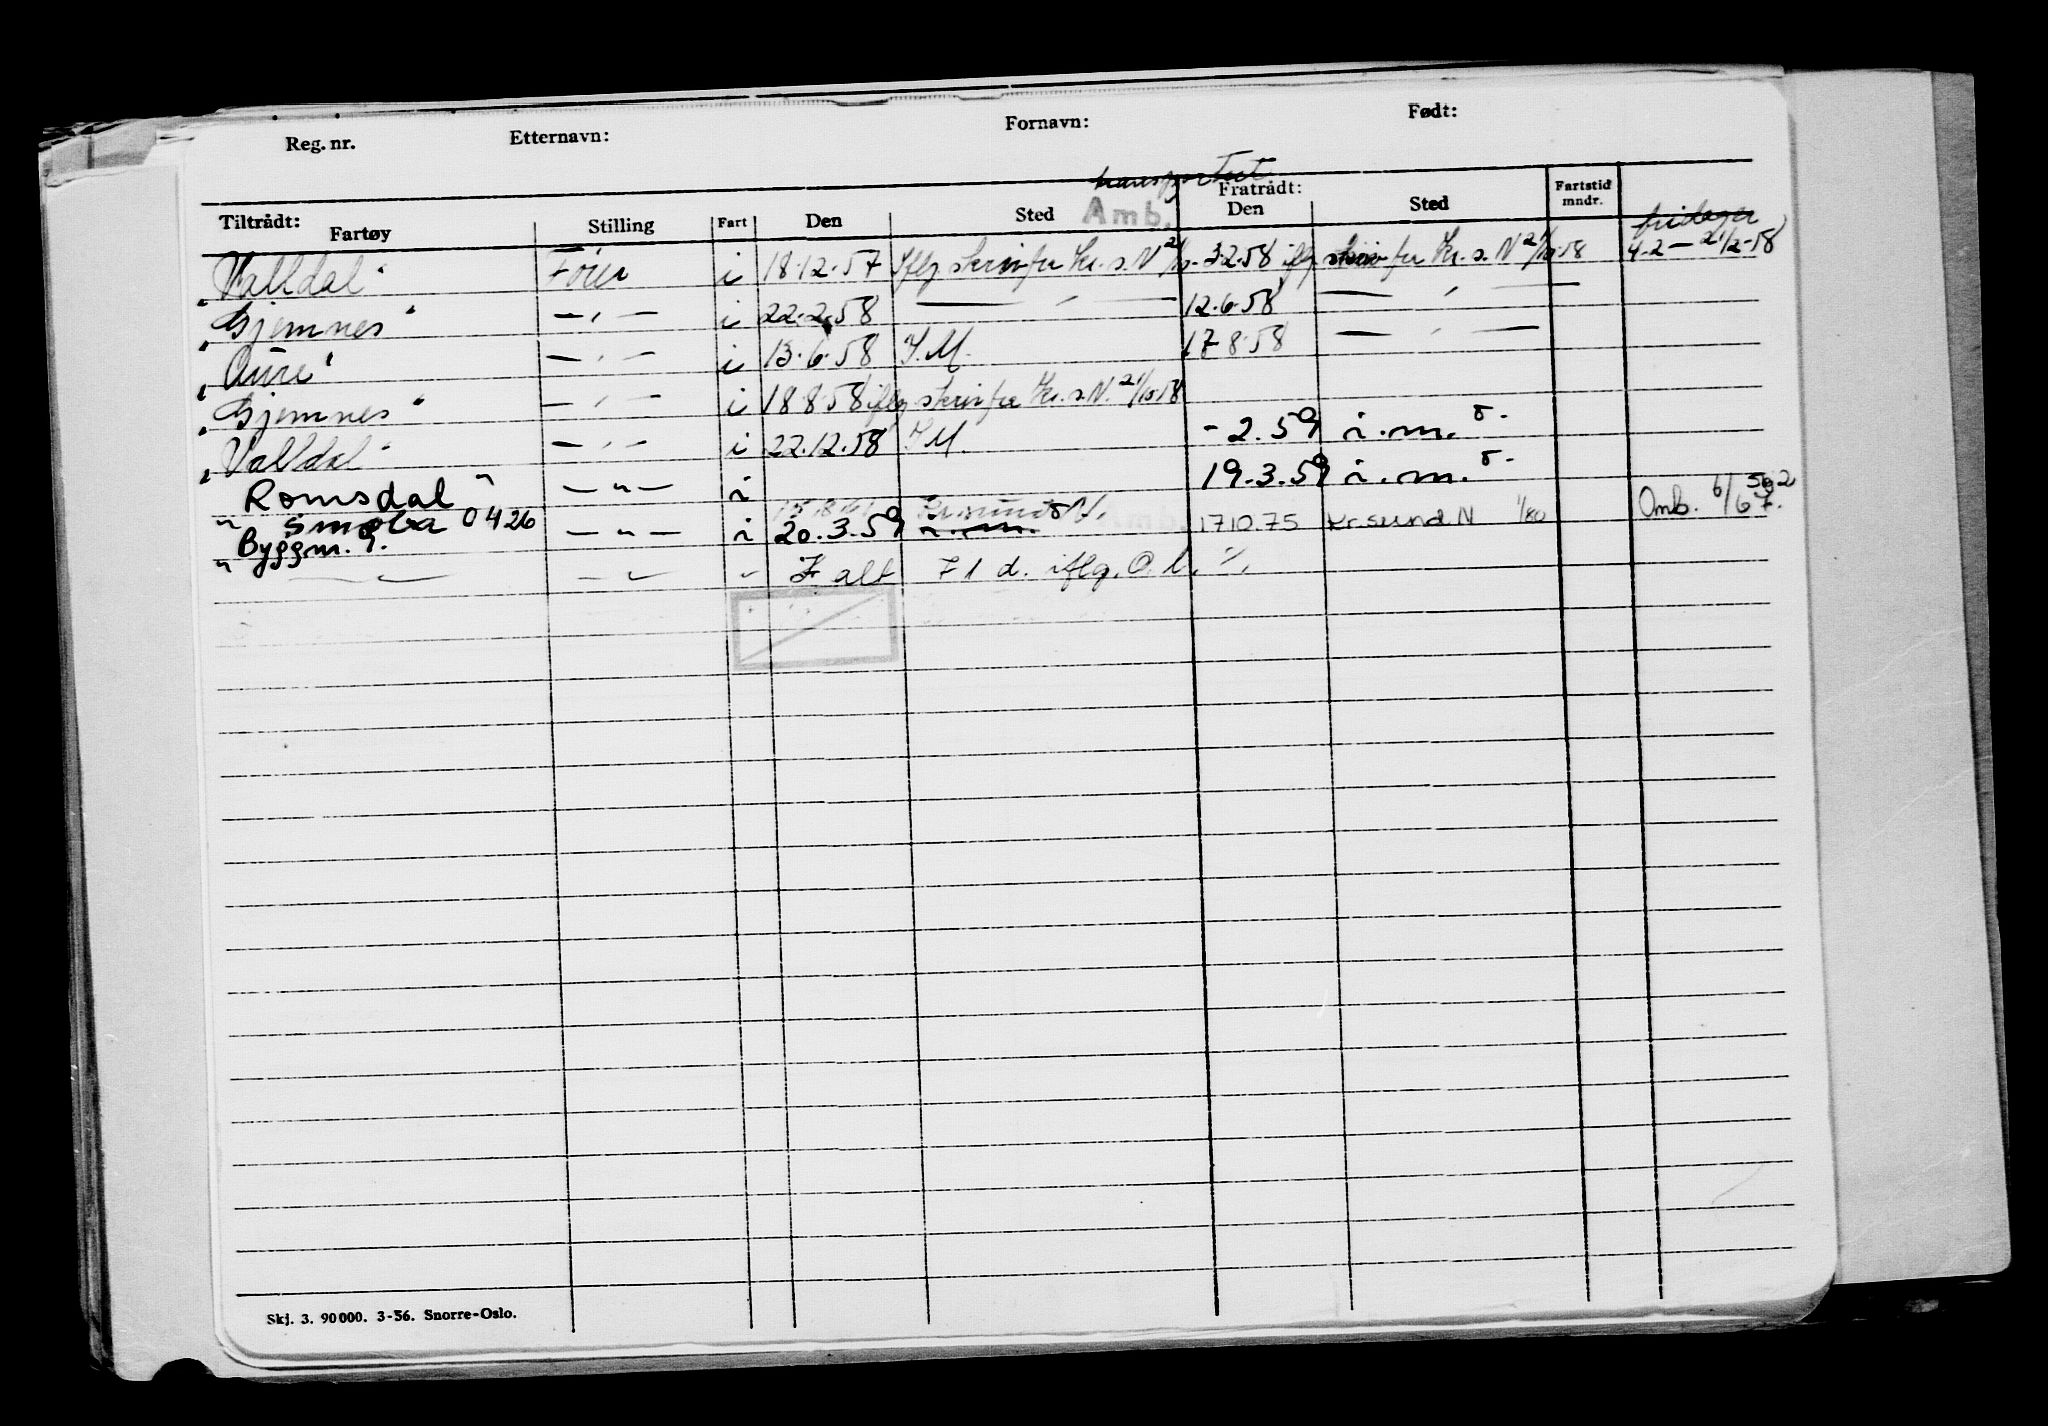 Reg. nr. Etternavn: Fornavn: Født:
transportert
Tiltrådt: Fratrådt:
Fartøy Stilling Fart Den Sted Amb. Den Sted Fartstid mndr. fridager
"Valldal" i 18.12.57 Iflg skriv fra Kr.s.N 3.2.58 iflg skriv fra Kr.s.N 4.2 — 21/2-58
"Gjemnes" — " — i 22.2.58 — " — 12.6.58 — " —
"Aure" — " — i 13.6.58 I.M. 17.8.58 — " —
"Gjemnes" — " — i 18.8.58 iflg skriv fra Kr.s.N.
"Valldal" — " — i 22.12.58 I.M. - 2.59 i.m.
"Romsdal" — " — i 19.3.59 i.m.
Smøla 0426 Kr.sund N.
" Byggm. — " — i 20.3.59 i.m. 17.10.75 Kr.sund N 1/80 Omb. 6/6 7.
I alt 71 d. iflg. O.l.
Skj. 3. 90000. 3-56. Snorre-Oslo.